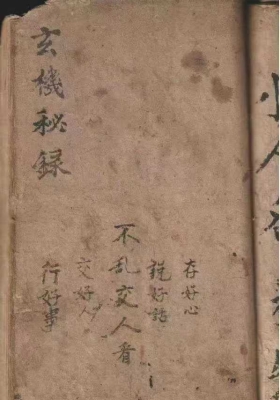 玄機秘录
存好心
説好話
不乱交人看
交好人
行好事